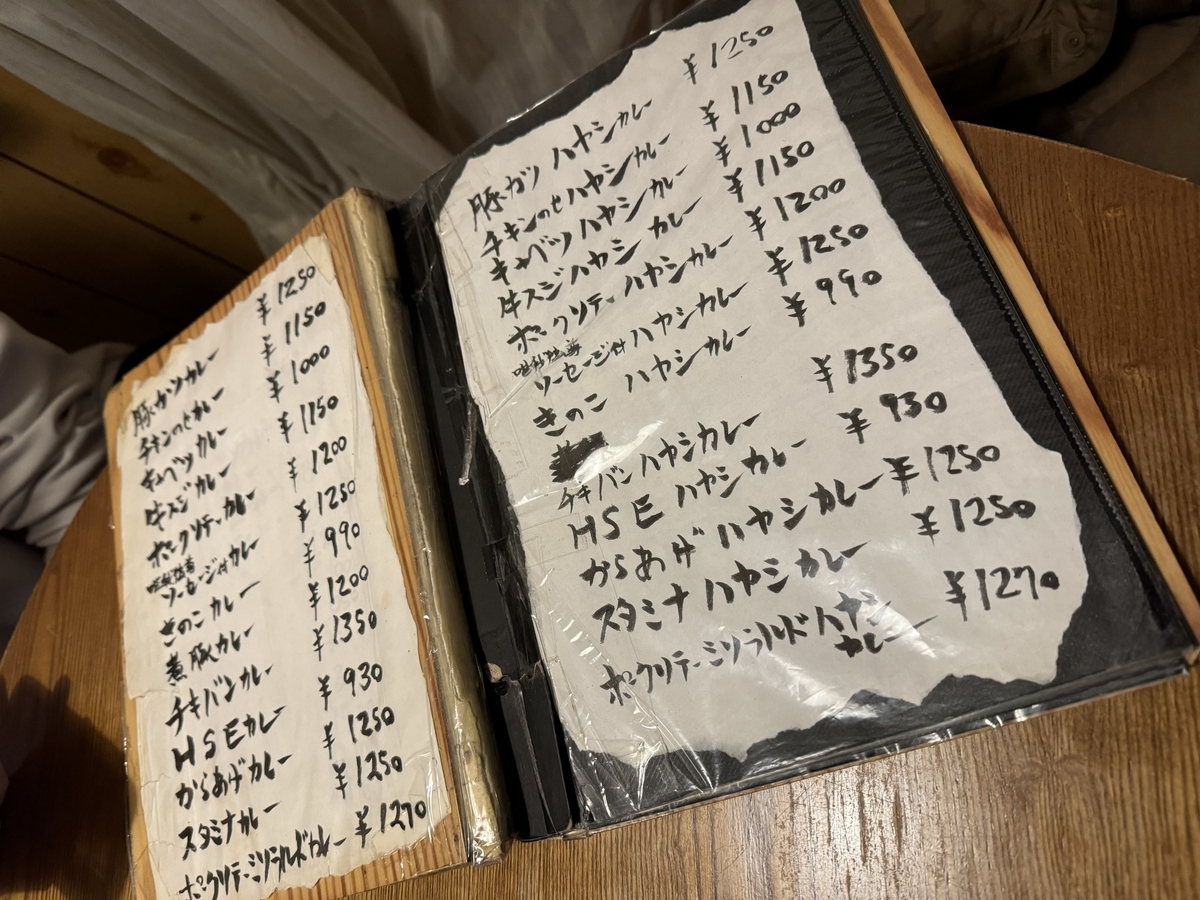 豚カツカレー ¥1250
チキンのせカレー ¥1150
キャベツカレー ¥1000
牛スジカレー ¥1150
ポークソテーカレー ¥1200
ソーセージ付カレー ¥1250
きのこカレー ¥990
煮豚カレー ¥1200
チキバンカレー ¥1350
HSEカレー ¥930
からあげカレー ¥1250
スタミナカレー ¥1250
ポークソテーミソラルドカレー ¥1270
豚カツハヤシカレー ¥1250
チキンのせハヤシカレー ¥1150
キャベツハヤシカレー ¥1000
牛スジハヤシカレー ¥1150
ポークソテーハヤシカレー ¥1200
ソーセージ付ハヤシカレー ¥1250
きのこハヤシカレー ¥990
チキバンハヤシカレー ¥1350
HSEハヤシカレー ¥930
からあげハヤシカレー ¥1250
スタミナハヤシカレー ¥1250
ポークソテーミソラルドハヤシ ¥1270
カレー